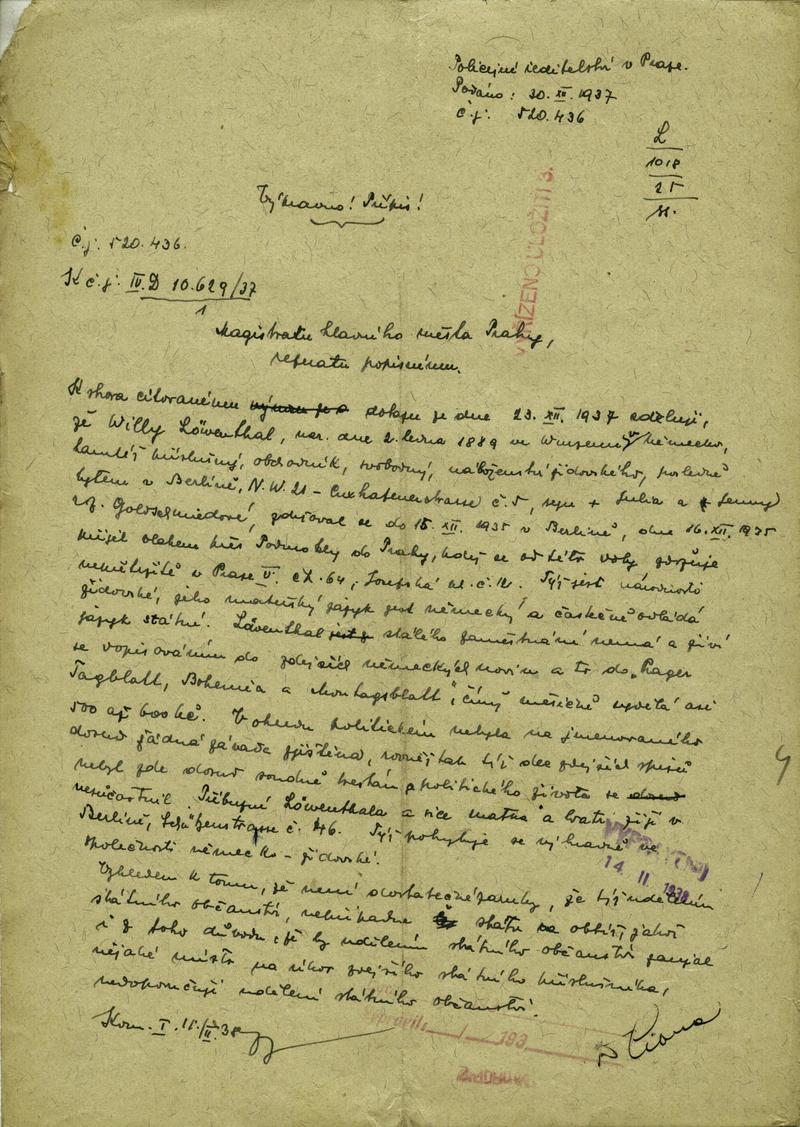 Policejní ředitelství v Praze.
Podáno: 30. XII. 1937
č.j. 520.436
L
1018
25
Průkis!
č.j. 520.436.
K č.j. IV. D 10.629/37
1
VYŘÍZENO ULOŽITI
Magistrátu hlavního města Prahy,
referátu popisnému.
K shora citovanému dotazu ze dne 23. XII. 1937 sděluji,
že Willy Löwenthal, nar. dne 2. ledna 1889 ve Německo,
tamtéž příslušný, obchodník, svobodný, náboženství židovského, posledně
bytem v Berlíně, N.W. 21 - Cuxhafenerstrasse č. 5, syn + Julia a
roz. Goldschmiedové, zdržoval se do 15. XII. 1935 v Berlíně, dne 16. XII. 1935
přijel vlakem přes Podmokly do Prahy, kdež se od této doby zdržuje
nepřetržitě v Praze V. čp. 64, Josefská ul. č. 12. Týž jest národnosti
židovské, jeho mateřský jazyk jest německý a částečně ovládá
jazyk státní. Löwenthal stálého zaměstnání nemá a živí
se dopisováním do zdejších německých novin a to do „Prager
Tagblatt, Bohemia a Montagsblatt", čímž měsíčně vydělá asi
500 až 600 Kč. V ohledu politickém nebyla na jmenovaného
dosud žádná závada zjištěna, rovněž tak týž dle zdejších spisů
nebyl zde dosud soudně trestán a politického života se
nesúčastnil. Příbuzní Löwenthala a sice matka a bratr žijí v
Berlíně, č. 46. Týž pohybuje se výhradně ve
společnosti německo-židovské.
14 II 1938
Vzhledem k tomu, že není dostatečné záruky, že týž udělením
státního občanství, nepřipadne státu na obtíž, jakož
i z toho důvodu, že by udělením státního občanství zaujal
nějaké místo na úkor zdejšího státního příslušníka,
nedoporučuji udělení státního občanství.
Kom. I. 11/II 38
193